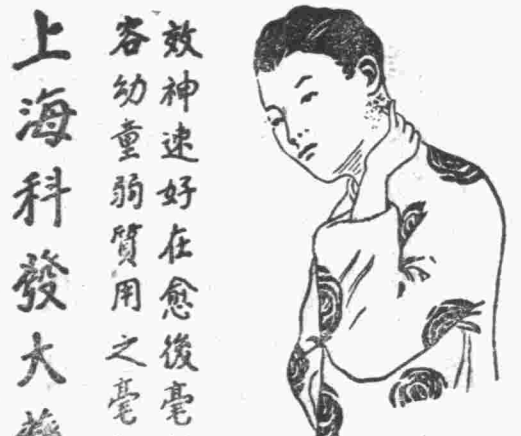 效神速好在愈後毫
容幼童弱質用之毫
上海科發大